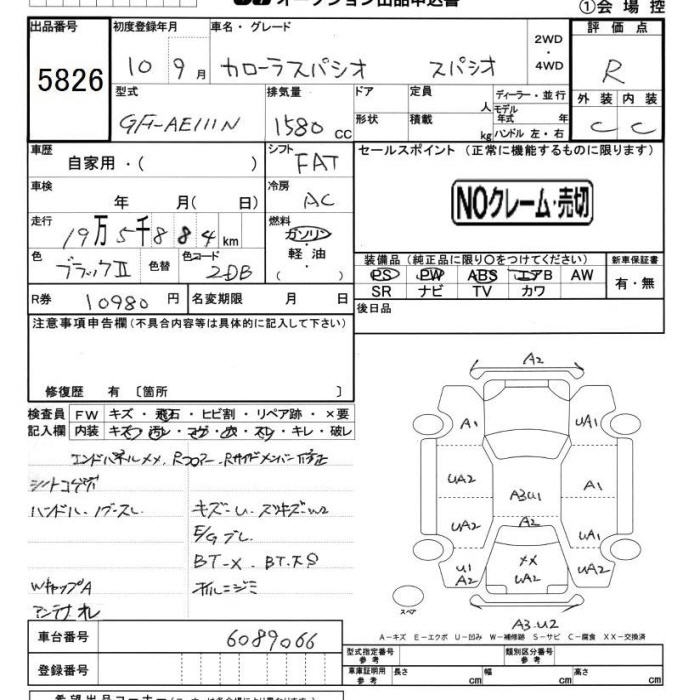 オークション出品申込書
①会場控
出品番号 初度登録年月 車名・グレード 2WD ・ 4WD 評価点
5826 10 9月 カローラスパシオ スパシオ R
型式 排気量 ドア 定員 人 ディーラー・並行 外装 内装
GF-AE111N 1580 CC 形状 積載 kg モデル年式 年 ハンドル 左・右 C C
車歴 自家用・( ) シフト FAT セールスポイント (正常に機能するものに限ります)
車検 年 月( 日) 冷房 AC
NOクレーム・売切
走行 19万5千884km 燃料 ガソリン・軽油 ( )
色 ブラックⅡ 色替 色コード 2DB
装備品 (純正品に限り○をつけてください) 新車保証書
PS PW ABS エアB AW 有・無
SR ナビ TV カワ
R券 10980円 名変期限 月 日 後日品
注意事項申告欄(不具合内容等は具体的に記入して下さい)
修復歴 有 〔箇所 〕
検査員 FW キズ・飛石・ヒビ割・リペア跡・×要
記入欄 内装 キズ・汚レ・コゲ・穴・スレ・キレ・破レ
エンドパネルメメ、Rフロアー、Rサイドメンバー修正
シートコゲ穴
ハンドル、ノブースレ キズ-U
E/Gブレ
BT-X
WキャップA オルニジミ
アンテナオレ
A2
A1 UA1
UA2 A3U1 A1
UA2 A2 UA1
U1 A2 XX UA2 UA2
スペア
A3.U2
A-キズ E-エクボ U-凹み W-補修跡 S-サビ C-腐食 XX-交換済
車台番号 6089066
型式指定番号参考 類別区分番号参考
登録番号 車庫証明用参考 長さ cm 幅 cm 高さ cm